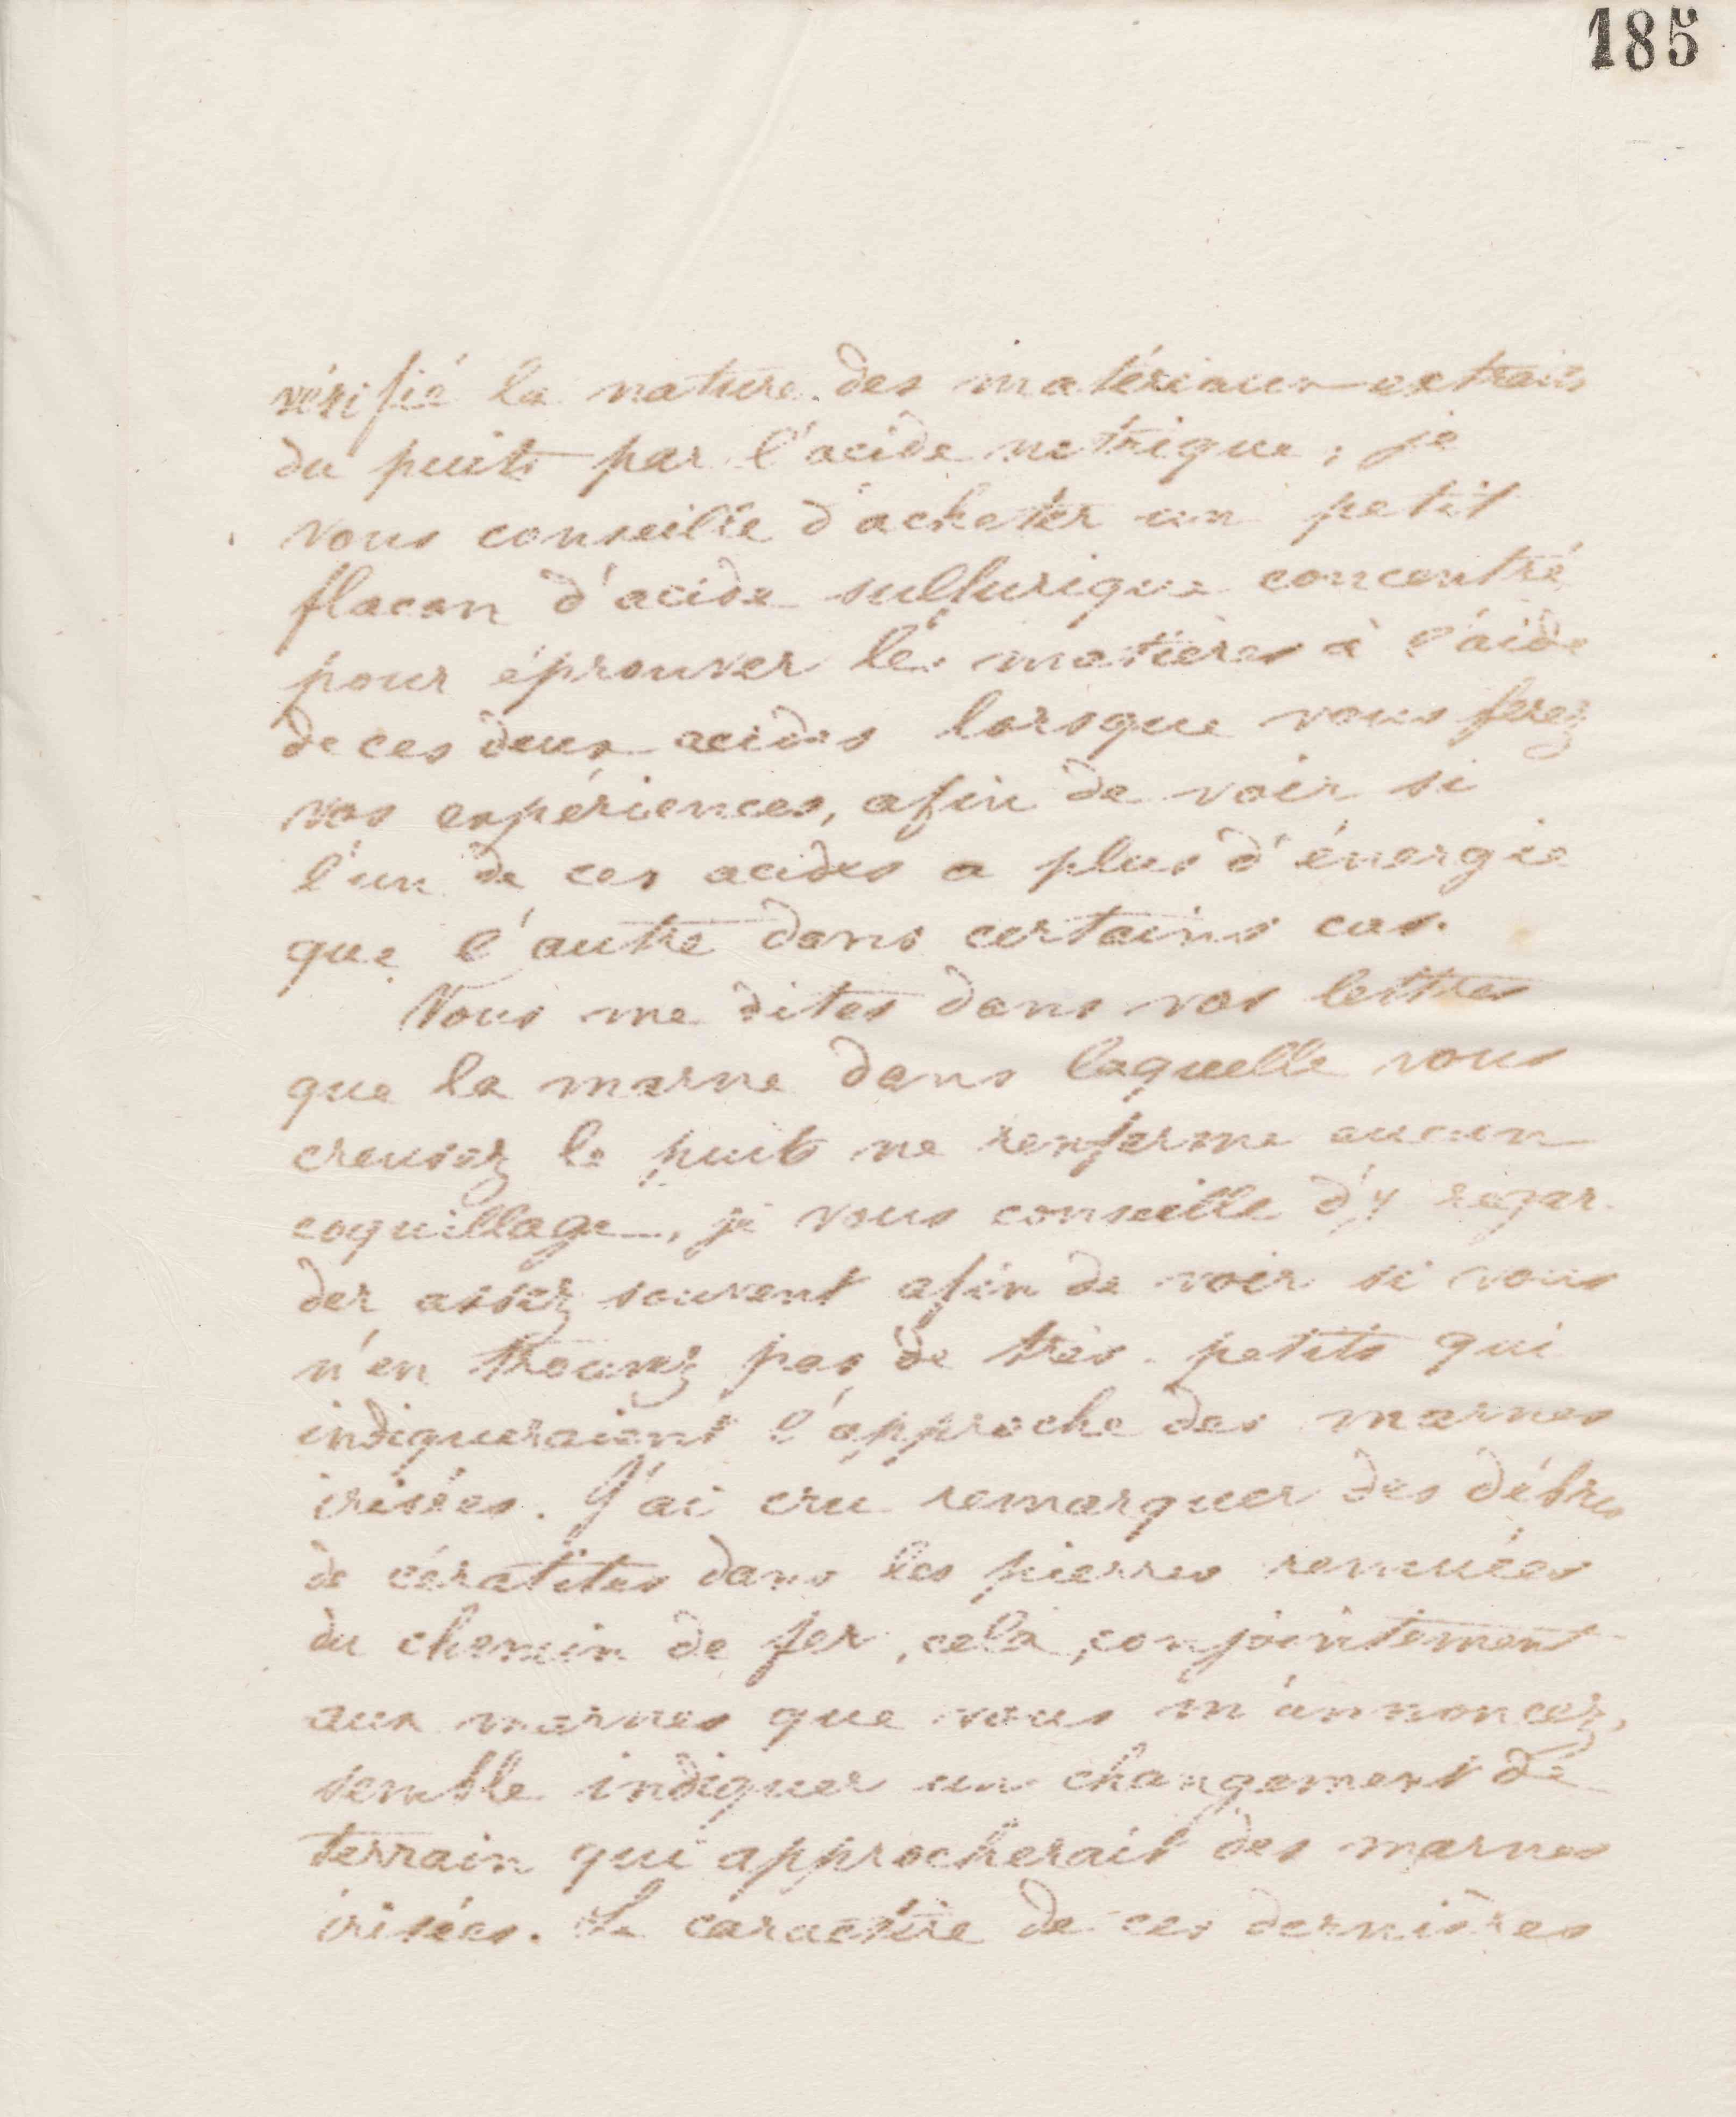 185
vérifié la nature des matériaux extraits
du puits par l'acide nitrique, je
vous conseille d'acheter un petit
flacon d'acide sulfurique concentré
pour éprouver les matières à l'aide
de ces deux acides lorsque vous ferez
vos expériences, afin de voir si
l'un de ces acides a plus d'énergie
que l'autre dans certains cas.
Vous me dites dans vos lettres
que la marne dans laquelle vous
creusez le puits ne renferme aucun
coquillage, je vous conseille d'y regar
der assez souvent afin de voir si vous
n'en trouvez pas de très-petits qui
indiqueraient l'approche des marnes
irisées. J'ai cru remarquer des débris
de cératites dans les pierres remuées
du chemin de fer, cela, conjointement
aux marnes que vous m'annoncez,
semble indiquer un changement de
terrain qui approcherait des marnes
irisées. Le caractère de ces dernières